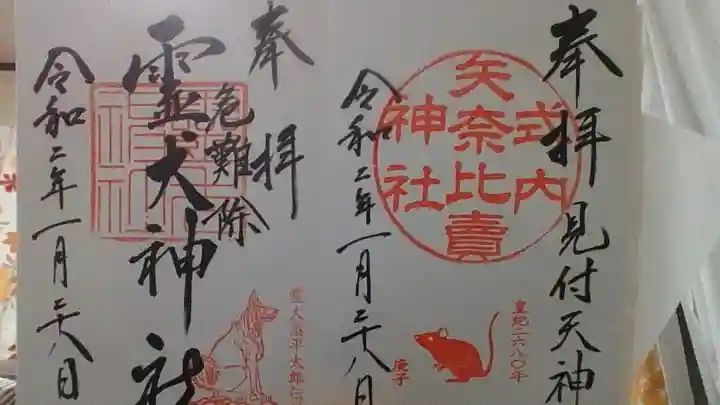 奉拝
見付天神
式内
矢奈比賣
神社
皇紀二六八〇年
庚子
令和二年一月二十八日
奉拝
危難除
霊犬神社
令和二年一月二十八日